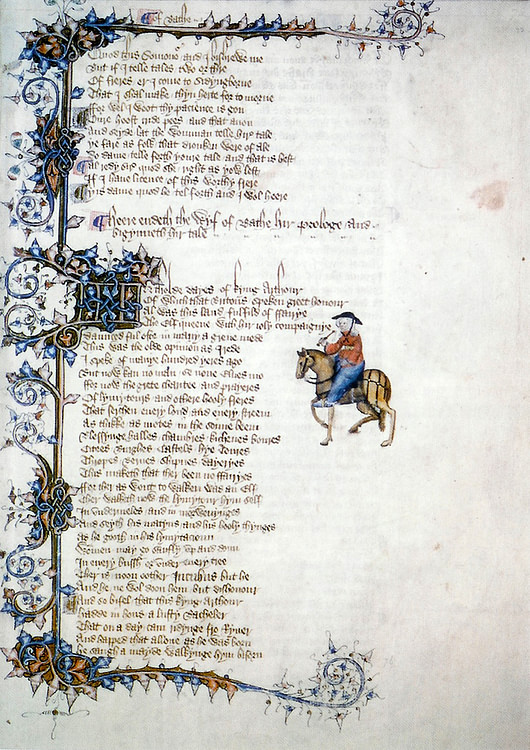 Of Bathe
Quod this Somonor and I bishrewe me
But if I telle tales two or thre
Of freres er I come to Sidyngborne
That I shal make thyn herte for to morne
ffor wel I woot thy pacience is gon
Oure hoost cride pees and that anon
And seyde lat the womman telle hire tale
Ye fare as folk that dronken were of ale
Do dame telle forth youre tale and that is best
Al redy sire quod she right as yow lest
If I haue licence of this worthy frere
Yis dame quod he tel forth and I wol heere
Heere endeth the Wyf of Bathe hir prologe and
bigynneth hir tale
In tholde dayes of kyng Arthour
Of which that Britons speken greet honour
Al was this land fulfild of ffairye
The Elf queene with hir ioly compaignye
Daunced ful ofte in many a grene mede
This was the olde opinion as I rede
I speke of manye hundred yeres ago
But now kan no man se none Elues mo
ffor now the grete charitee and prayeres
Of lymytours and othere hooly freres
That serchen euery lond and euery streem
As thikke as motes in the sonne beem
Blessynge halles chambres kichenes boures
Citees Burghes Castels hye Toures
Thropes Bernes Shipnes dayeryes
This maketh that ther been no ffairyes
ffor ther as wont to walken was an Elf
Ther walketh now the lymytour hym self
In vndermeles and in morwenynges
And seyth his matyns and his hooly thynges
As he gooth in his lymytacioun
Wommen may go saufly vp and doun
In euery bussh or vnder euery tree
Ther is noon oother Incubus but he
And he ne wol doon hem but dishonour
And so bifel that this kyng Arthour
hadde in hous a lusty Bacheler
That on a day cam ridynge fro Ryuer
And happed that allone as he was born
he saugh a mayde walkynge hym biforn